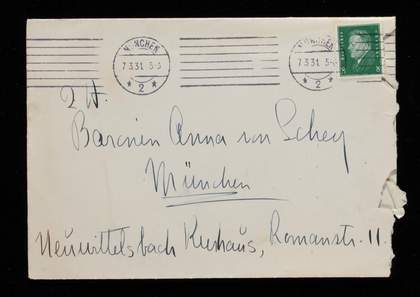 MÜNCHEN
7.3.31. 5-6
* 2 *
MÜNCHEN
7.3.31. 5-6
* 2 *
I. H.
Baronin Anna von Schey
München
Neuwittelsbach Kurhaus, Romanstr. 11.